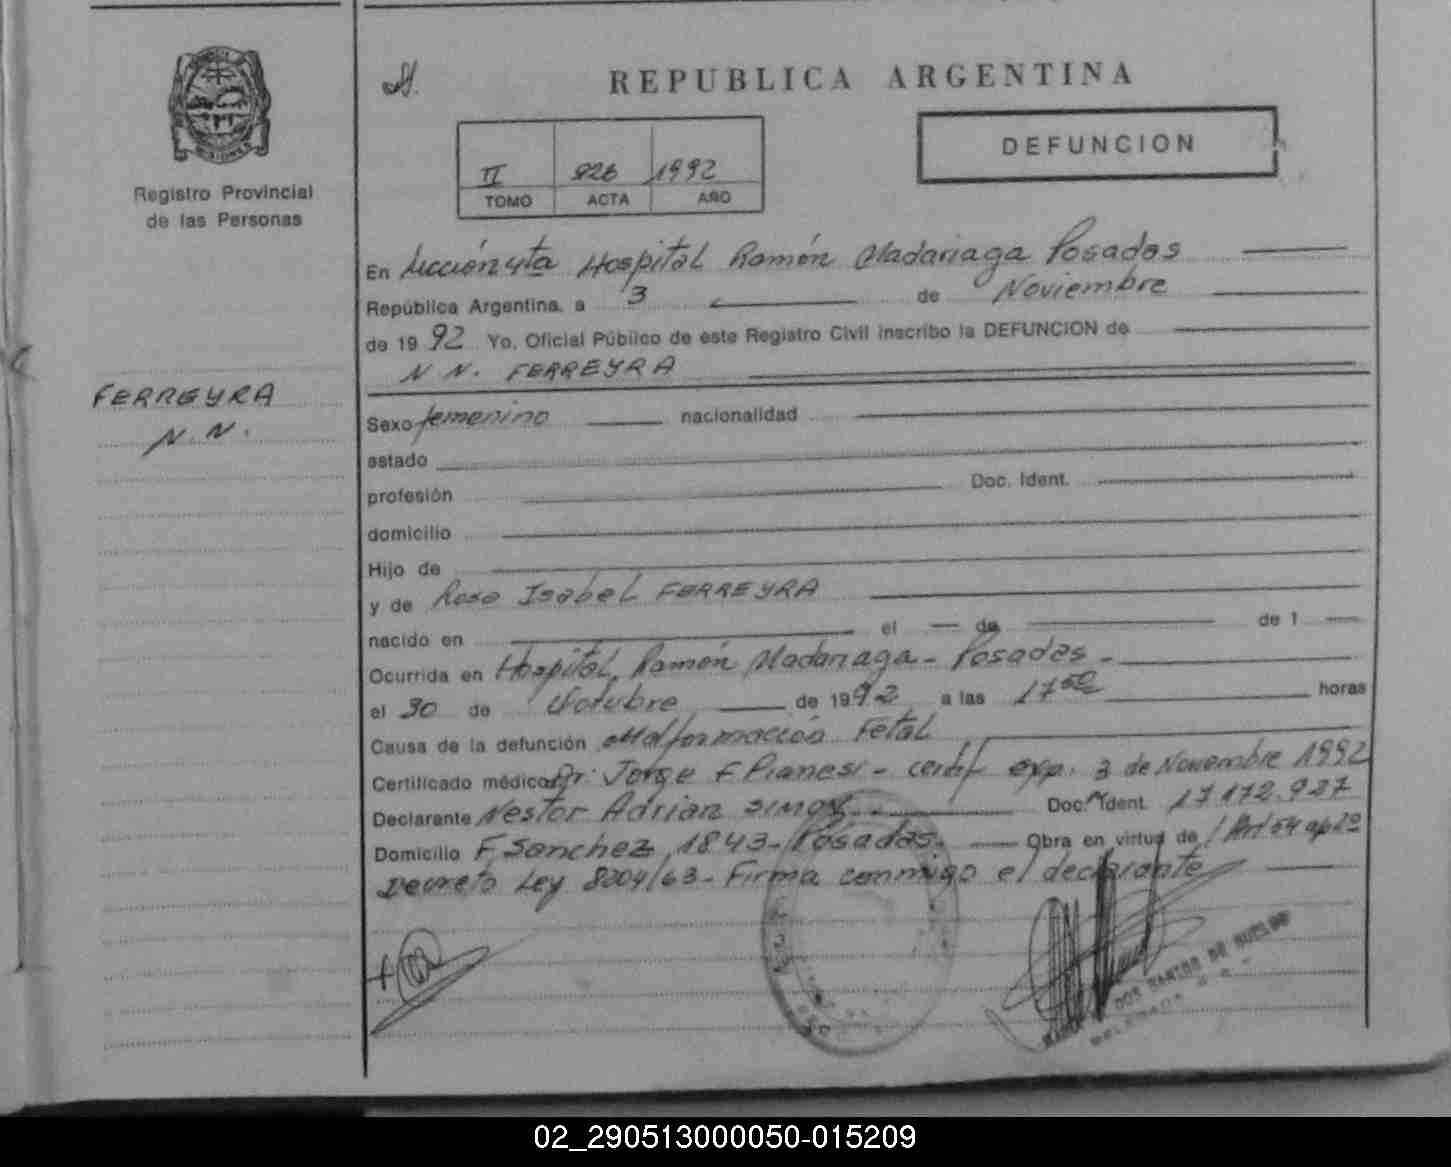 REPUBLICA ARGENTINA
MISIONES
Registro Provincial
de las Personas
II 826 1992
TOMO ACTA AÑO
DEFUNCION
En Sección 4ta Hospital Ramón Madariaga Posadas
República Argentina, a 3 de Noviembre
de 1992 Yo, Oficial Público de este Registro Civil inscribo la DEFUNCION de
N N. FERREYRA
FERREYRA
N. N.
Sexo femenino nacionalidad
estado
profesión Doc. Ident.
domicilio
Hijo de
y de Rosa Isabel FERREYRA
nacido en el de de 1
Ocurrida en Hospital Ramón Madariaga - Posadas -
el 30 de Octubre de 1992 a las 17 50 horas
Causa de la defunción Malformación Fetal
Certificado médico Dr. Jorge F. Pianesi - certif exp. 3 de Noviembre 1992
Declarante Nestor Adrian Doc. Ident. 17.172.937
Domicilio F. Sanchez 1843 - Posadas. Obra en virtud de Art 54 ap 2º
Decreto Ley 8204/63 - Firma conmigo el declarante
DOS SANTOS DE
02_290513000050-015209